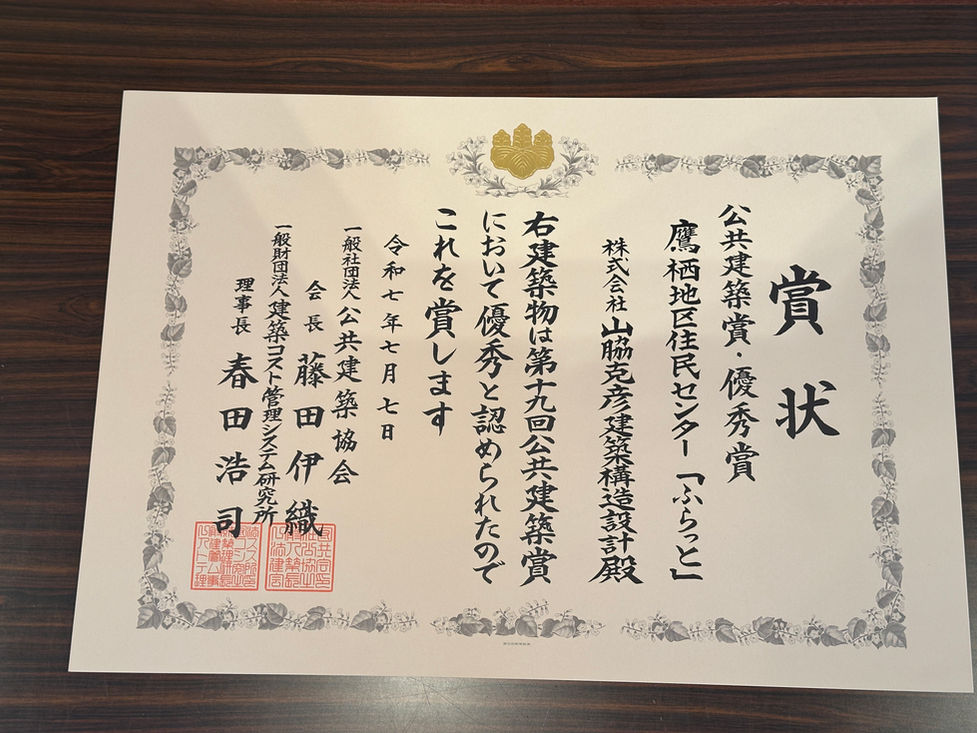 賞状
公共建築賞・優秀賞
鷹栖地区住民センター「ふらっと」
株式会社 山脇克彦建築構造設計殿
右建築物は第十九回公共建築賞
において優秀と認められたので
これを賞します
令和七年七月七日
一般社団法人 公共建築協会
会長 藤田伊織
一般財団法人 建築コスト管理システム研究所
理事長 春田浩司